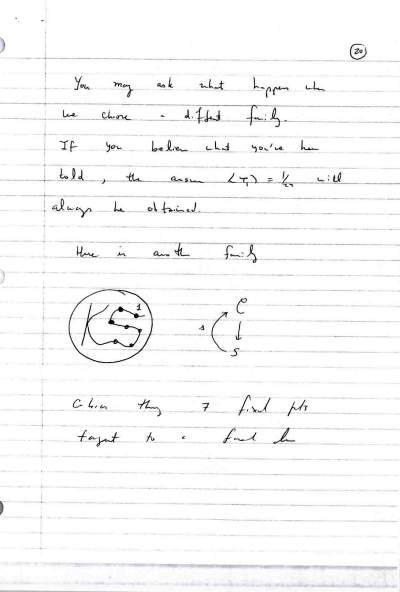 20
You may ask what happens when
we chose a different family.
If you believe what you've been
told, the answer ⟨τ₁⟩ = 1/24 will
always be obtained.
Here is another family
1
C
1 ↓
S
Cubics thru 7 fixed pts
tangent to a fixed line